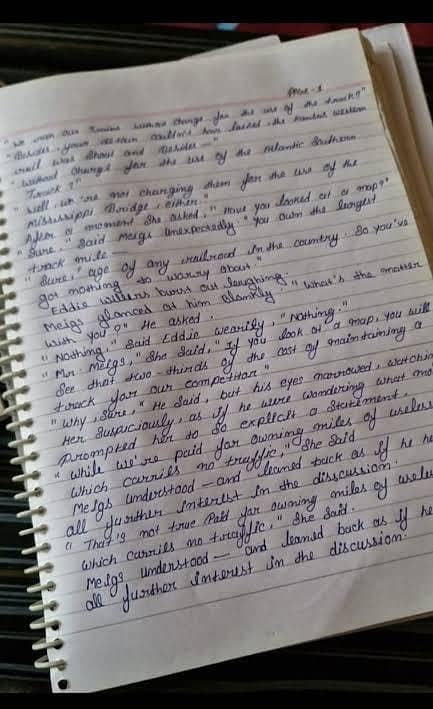 Page - 1
"We run our trains without charge for the use of the track?"
"Besides, your western couldn't have lasted. the Kansas western
rail was short and Besides—"
"without charge for the use of the Atlantic Southern
Track?"
"Well, we're not charging them for the use of the
Mississippi Bridge, either."
After a moment She asked, "Have you looked at a map?"
"Sure," Said Meigs unexpectedly. "You own the largest
track mile—
"Sure," age of any railroad in the country. So you've
got nothing to worry about."
Eddie willers burst out laughing.
Meigs glanced at him blankly. "What's the matter
with you?" He asked.
"Nothing," Said Eddie wearily, "Nothing."
"Mr. Meigs," She Said, "If you look at a map, you will
See that two-thirds of the cost of maintaining a
track for our competitor."
"Why, Sure," He Said, but his eyes narrowed, watchin
Her Suspiciously, as if he were wondering what mo
prompted her to so explicit a Statement.
"While we're paid for owning miles of useles
which carries no traffic," She Said
Meigs understood — and leaned back as if he he
all further interest in the discussion.
"That's not true Paid for owning miles of useles
which carries no traffic." She Said.
Meigs understood — and leaned back as if he
all further interest in the discussion.